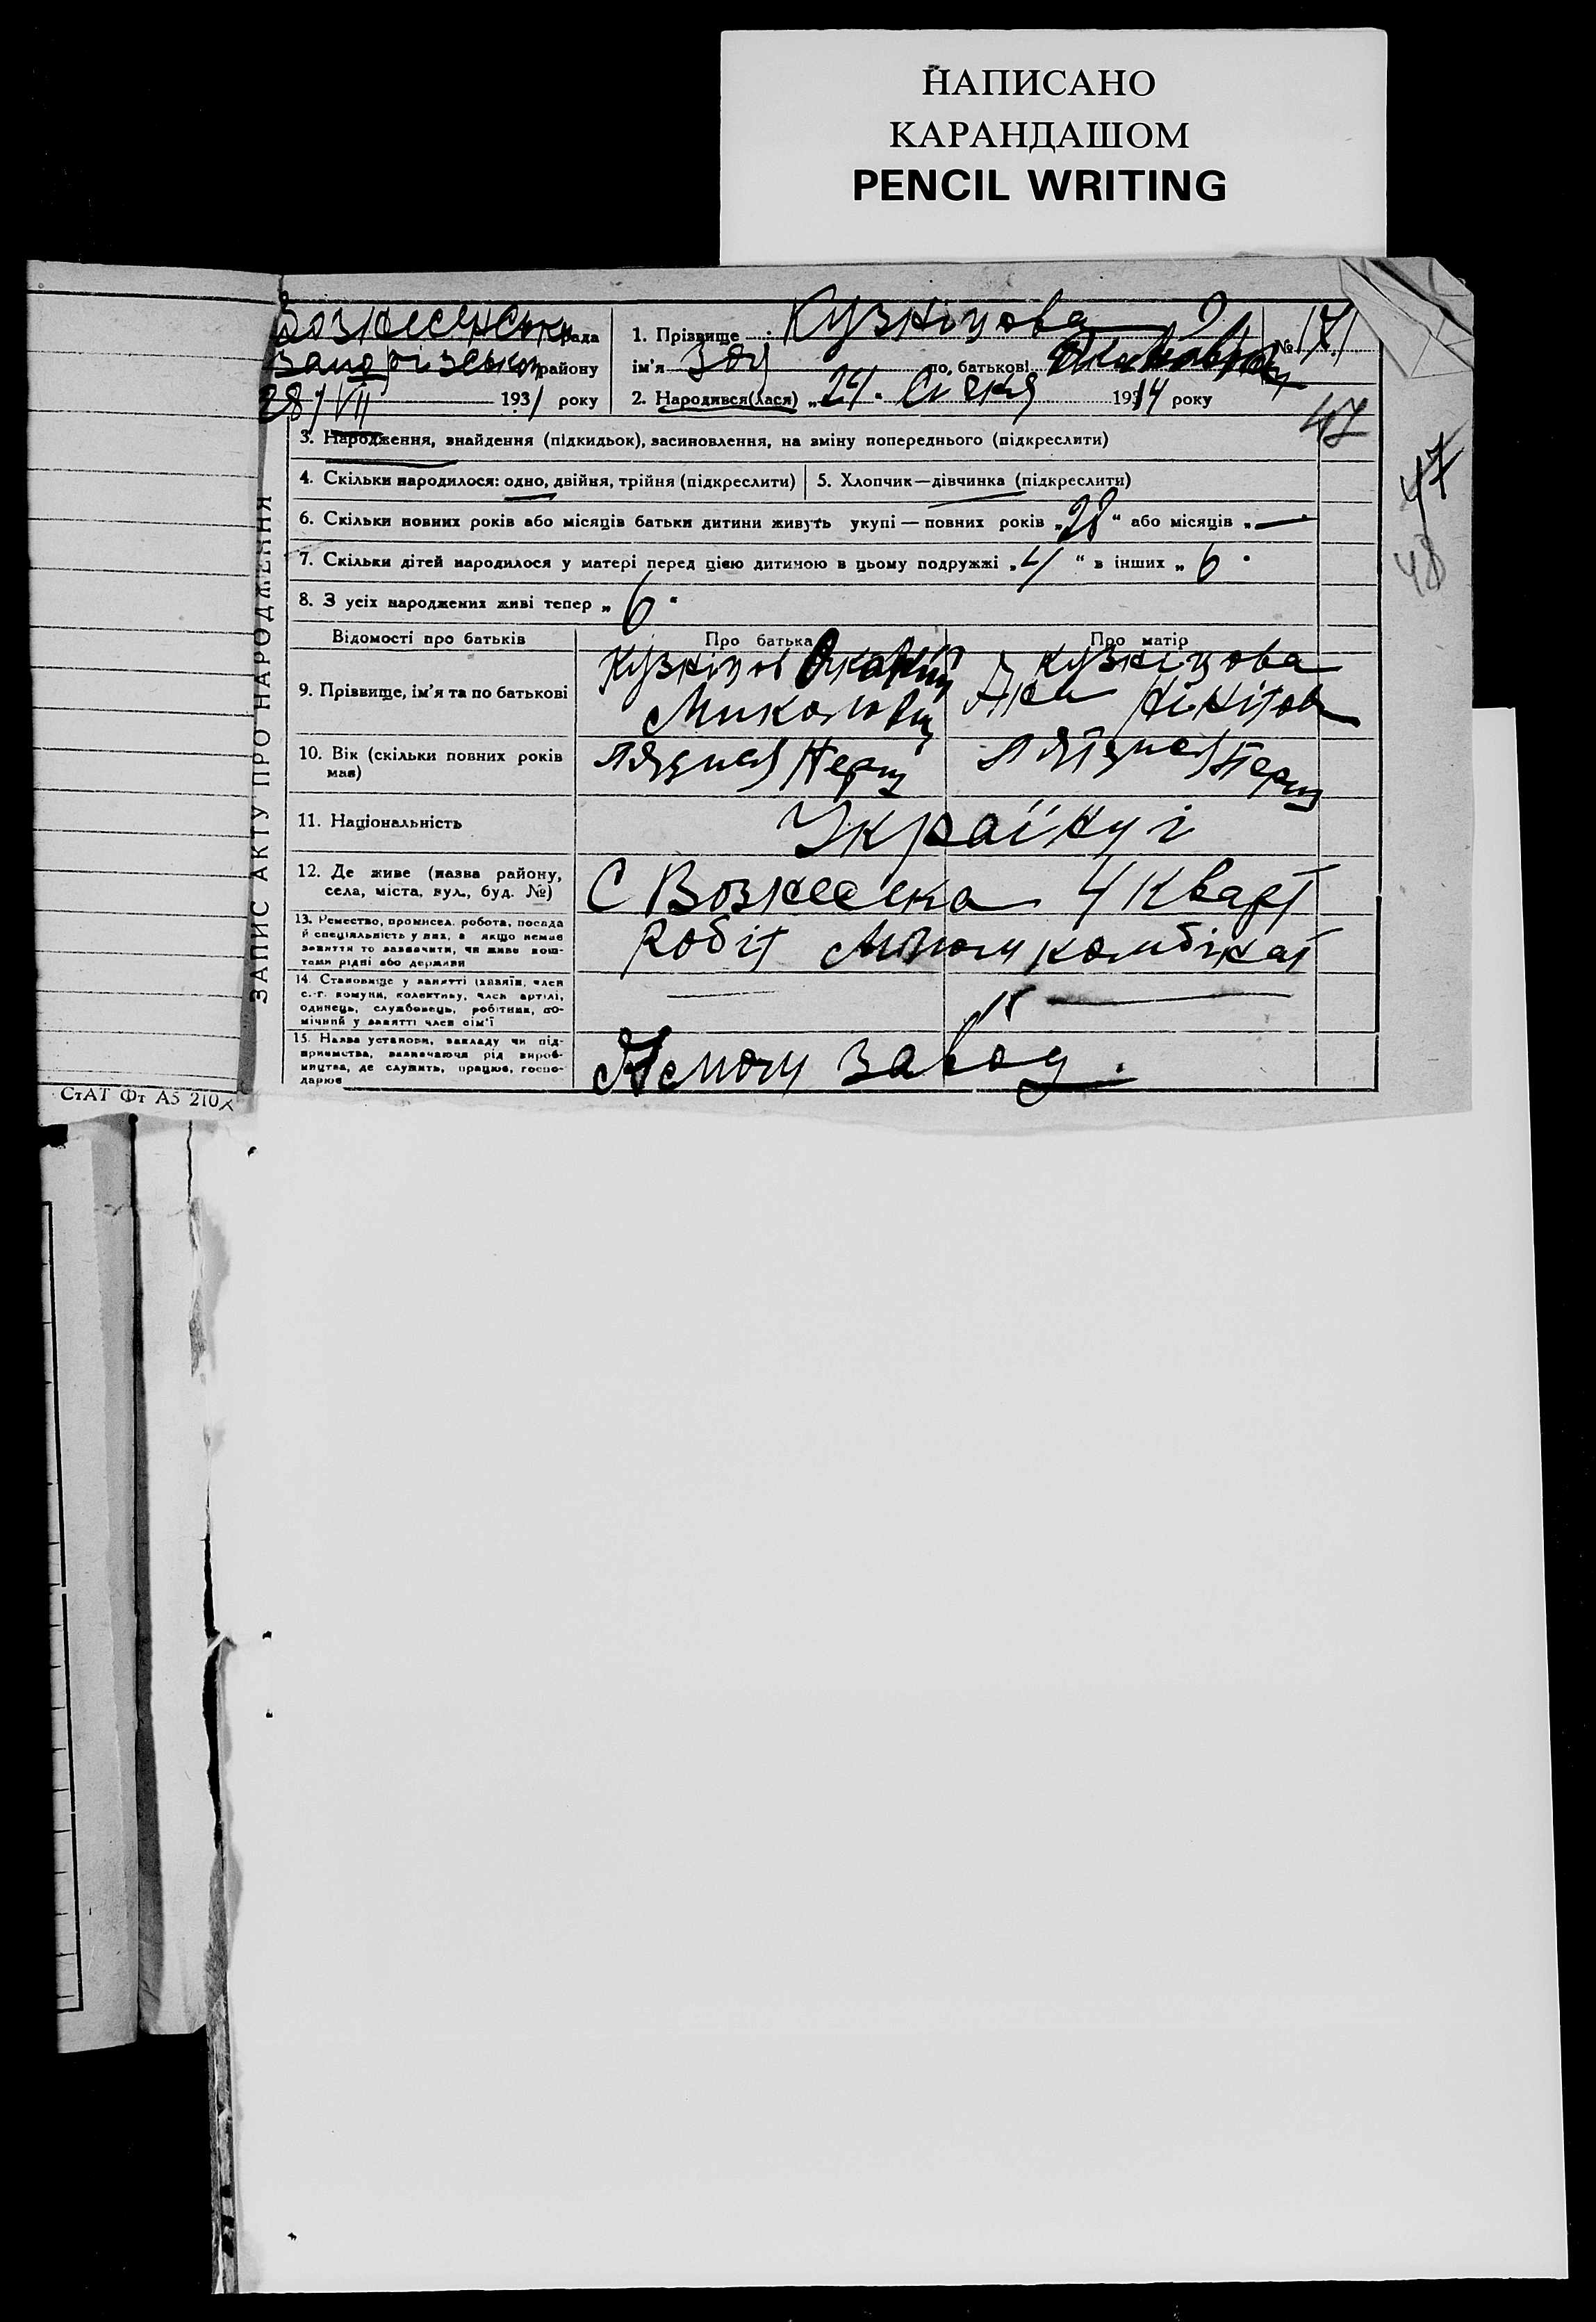 НАПИСАНО
КАРАНДАШОМ
PENCIL WRITING
Вознесенська рада
Запорізького району
28/VII 1931 року
1. Прізвище Кузніцова
ім'я Зоя по батькові
№ 171
2. Народився(лася) „24" Січня 1914 року
47
47
48
ЗАПИС АКТУ ПРО НАРОДЖЕННЯ
3. Народження, знайдення (підкидьок), засиновлення, на зміну попереднього (підкреслити)
4. Скільки народилося: одно, двійня, трійня (підкреслити)
5. Хлопчик—дівчинка (підкреслити)
6. Скільки повних років або місяців батьки дитини живуть укупі — повних років „28" або місяців „—"
7. Скільки дітей народилося у матері перед цією дитиною в цьому подружжі „4" в інших „6"
8. З усіх народжених живі тепер „6"
Відомості про батьків
Про батька
Про матір
9. Прізвище, ім'я та по батькові
Кузніцов
Миколович
Кузніцова
10. Вік (скільки повних років
має)
11. Національність
Українці
12. Де живе (назва району,
села, міста, вул., буд. №)
С Вознесенка 4 Кварт
13. Ремество, промисел, робота, посада
й спеціяльність у них, а якщо немає
заняття то зазначити, чи живе кош-
тами рідні або держави
Робіт комбінат
14. Становище у занятті (хазяїн, член
с.-г. комуни, колективу, член артілі,
одинець, службовець, робітник, по-
мічний у занятті член сім'ї
15. Назва установи, закладу чи під-
приємства, зазначаючи рід вироб-
ництва, де служить, працює, госпо-
дарює
завод
СтАТ Фт А5 210